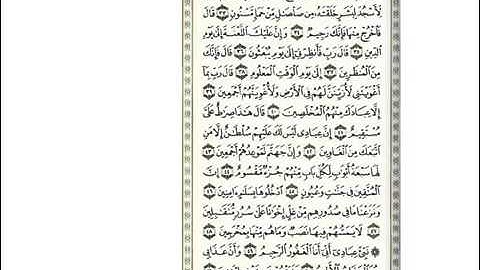 لِأَسْجُدَ لِبَشَرٍ خَلَقْتَهُۥ مِن صَلْصَٰلٍ مِّنْ حَمَإٍ مَّسْنُونٍ ٣٣ قَالَ
فَٱخْرُجْ مِنْهَا فَإِنَّكَ رَجِيمٌ ٣٤ وَإِنَّ عَلَيْكَ ٱللَّعْنَةَ إِلَىٰ يَوْمِ
ٱلدِّينِ ٣٥ قَالَ رَبِّ فَأَنظِرْنِىٓ إِلَىٰ يَوْمِ يُبْعَثُونَ ٣٦ قَالَ فَإِنَّكَ
مِنَ ٱلْمُنظَرِينَ ٣٧ إِلَىٰ يَوْمِ ٱلْوَقْتِ ٱلْمَعْلُومِ ٣٨ قَالَ رَبِّ بِمَآ
أَغْوَيْتَنِى لَأُزَيِّنَنَّ لَهُمْ فِى ٱلْأَرْضِ وَلَأُغْوِيَنَّهُمْ أَجْمَعِينَ ٣٩
إِلَّا عِبَادَكَ مِنْهُمُ ٱلْمُخْلَصِينَ ٤٠ قَالَ هَٰذَا صِرَٰطٌ عَلَىَّ
مُسْتَقِيمٌ ٤١ إِنَّ عِبَادِى لَيْسَ لَكَ عَلَيْهِمْ سُلْطَٰنٌ إِلَّا مَنِ
ٱتَّبَعَكَ مِنَ ٱلْغَاوِينَ ٤٢ وَإِنَّ جَهَنَّمَ لَمَوْعِدُهُمْ أَجْمَعِينَ ٤٣
لَهَا سَبْعَةُ أَبْوَٰبٍ لِّكُلِّ بَابٍ مِّنْهُمْ جُزْءٌ مَّقْسُومٌ ٤٤ إِنَّ
ٱلْمُتَّقِينَ فِى جَنَّٰتٍ وَعُيُونٍ ٤٥ ٱدْخُلُوهَا بِسَلَٰمٍ ءَامِنِينَ ٤٦
وَنَزَعْنَا مَا فِى صُدُورِهِم مِّنْ غِلٍّ إِخْوَٰنًا عَلَىٰ سُرُرٍ مُّتَقَٰبِلِينَ
٤٧ لَا يَمَسُّهُمْ فِيهَا نَصَبٌ وَمَا هُم مِّنْهَا بِمُخْرَجِينَ ٤٨
۞ نَبِّئْ عِبَادِىٓ أَنِّىٓ أَنَا ٱلْغَفُورُ ٱلرَّحِيمُ ٤٩ وَأَنَّ عَذَابِى